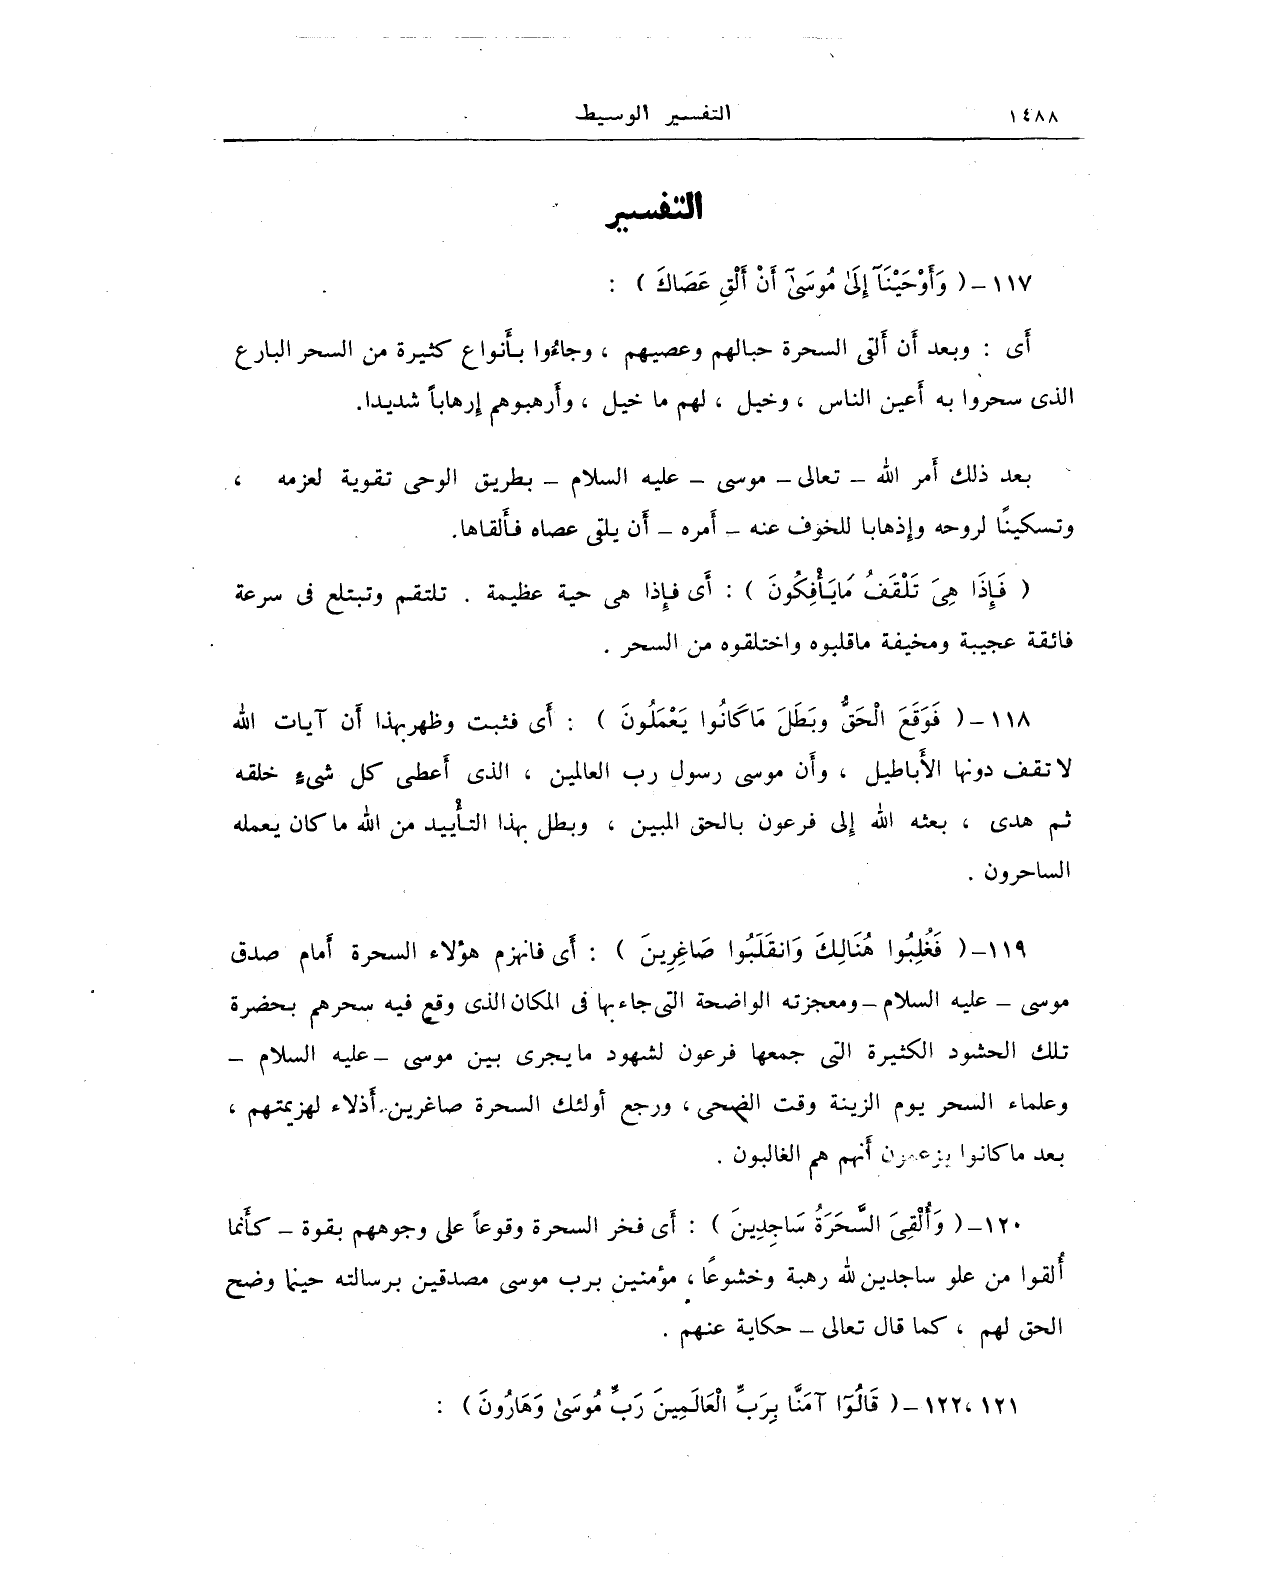 ١٤٨٨ التفسير الوسيط
التفسير
١١٧ – ( وَأَوْحَيْنَآ إِلَىٰ مُوسَىٰٓ أَنْ أَلْقِ عَصَاكَ ) :
أَى : وبعد أَن ألقى السحرة حبالهم وعصيهم ، وجاءُوا بأَنواع كثيرة من السحر البارع
الذى سحروا به أَعين الناس ، وخيل ، لهم ما خيل ، وأَرهبوهم إِرهاباً شديدا.
بعد ذلك أَمر الله – تعالى – موسى – عليه السلام – بطريق الوحى تقوية لعزمه ،
وتسكينًا لروحه وإِذهابا للخوف عنه – أَمره – أَن يلقى عصاه فأَلقاها.
( فَإِذَا هِىَ تَلْقَفُ مَايَأْفِكُونَ ) : أَى فإِذا هى حية عظيمة . تلتقم وتبتلع فى سرعة
فائقة عجيبة ومخيفة ماقلبوه واختلقوه من السحر .
١١٨ – ( فَوَقَعَ الْحَقُّ وبَطَلَ مَاكَانُوا يَعْمَلُونَ ) : أَى فثبت وظهربهذا أَن آيات الله
لاتقف دونها الأَباطيل ، وأَن موسى رسول رب العالمين ، الذى أَعطى كل شىءٍ خلقه
ثم هدى ، بعثه الله إلى فرعون بالحق المبين ، وبطل بهذا التأْييد من الله ماكان يعمله
الساحرون .
١١٩ – ( فَغُلِبُوا هُنَالِكَ وَانقَلَبُوا صَاغِرِينَ ) : أَى فانهزم هؤلاء السحرة أَمام صدق
موسى – عليه السلام – ومعجزته الواضحة التى جاءبها فى المكان الذى وقع فيه سحرهم بحضرة
تلك الحشود الكثيرة التى جمعها فرعون لشهود مايجرى بين موسى – عليه السلام –
وعلماء السحر يوم الزينة وقت الضحى ، ورجع أولئك السحرة صاغرين أَذلاء لهزيمتهم ،
بعد ماكانوا يزعمون أَنهم هم الغالبون .
١٢٠ – ( وَأُلْقِىَ السَّحَرَةُ سَاجِدِينَ ) : أَى فخر السحرة وقوعاً على وجوههم بقوة – كأَنما
أُلقوا من علو ساجدين لله رهبة وخشوعًا ، مؤمنين برب موسى مصدقين برسالته حينما وضح
الحق لهم ، كما قال تعالى – حكاية عنهم .
١٢١ ،١٢٢ – ( قَالُوٓا آمَنَّا بِرَبِّ الْعَالَمِينَ رَبِّ مُوسَىٰ وَهَارُونَ ) :